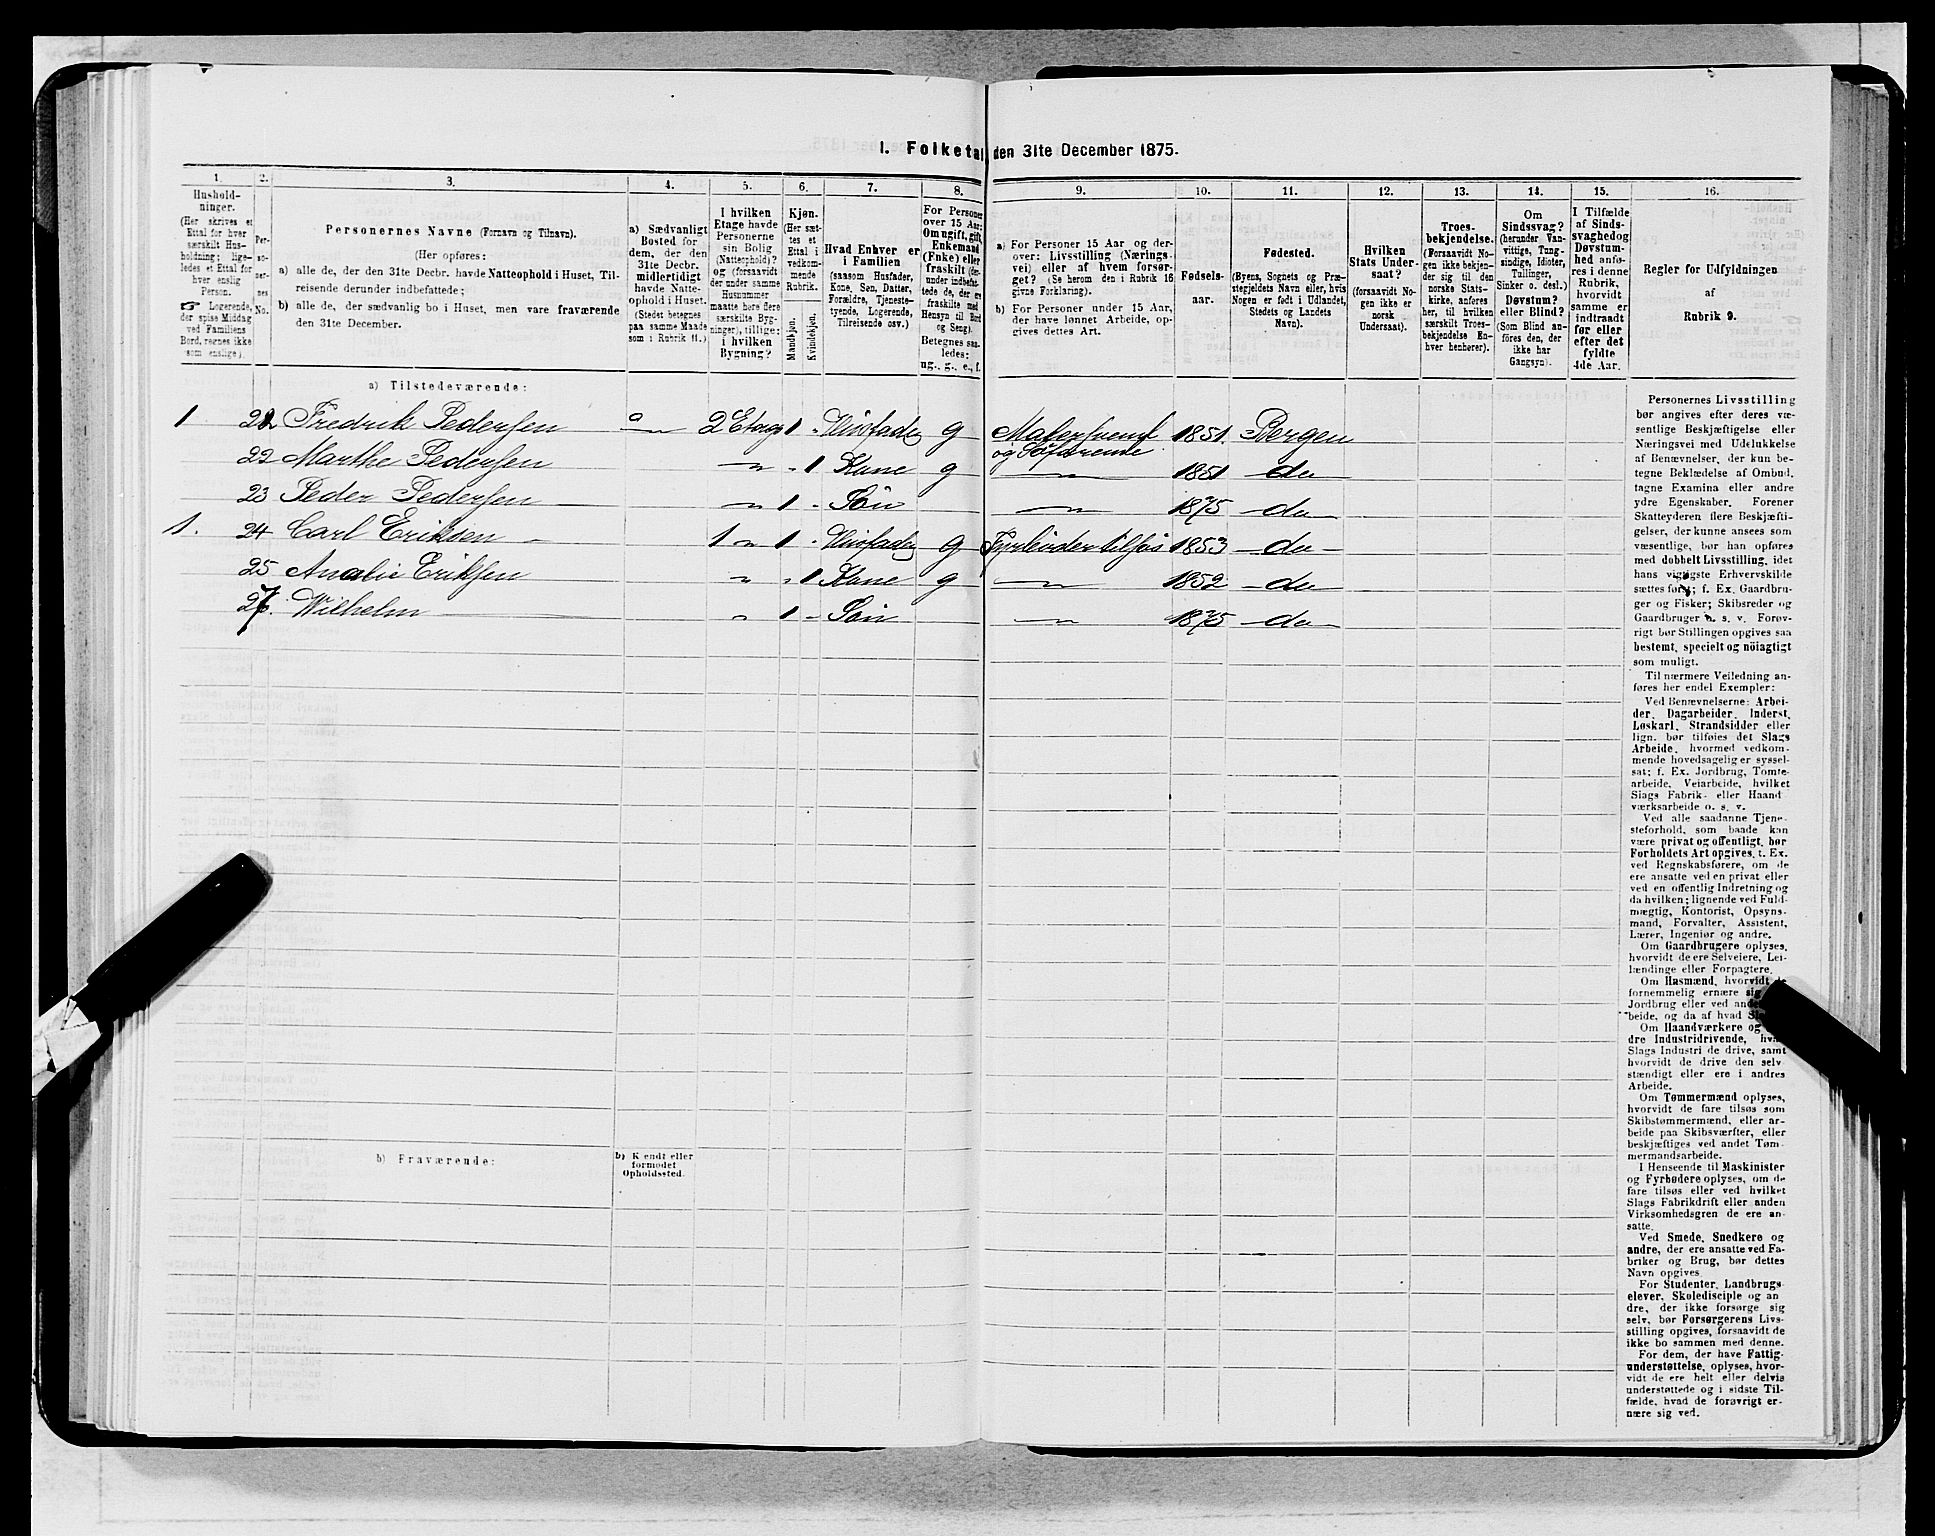 1. Folketal den 31te December 1875.
1. 2. 3. 4. 5. 6. 7. 8. 9. 10. 11. 12. 13. 14. 15. 16.
Hushold-
ninger.
(Her skrives et
Ettal for hver
særskilt Hus-
holdning; lige-
ledes et Ettal for
hver enslig
Person.
☞ Logerende,
der spise Middag
ved Familiens
Bord, regnes ikke
som enslige).
Per-
so-
ner-
nes
No.
Personernes Navne (Fornavn og Tilnavn).
(Her opføres:
a) alle de, der den 31te Decbr. havde Natteophold i Huset, Til-
reisende derunder indbefattede;
b) alle de, der sædvanlig bo i Huset, men vare fraværende
den 31te December.
a) Sædvanligt
Bosted for
dem, der den
31te Decbr.
midlertidigt
havde Natte-
ophold i Huset.
(Stedet betegnes
paa samme Maade
som i Rubrik 11.)
I hvilken
Etage havde
Personerne
sin Bolig
(Natteophold)?
og (forsaavidt
der under samme
Husnummer
maatte høre flere
særskilte Byg-
ninger), tillige:
i hvilken
Bygning?
Kjøn.
(Her sæt-
tes et
Ettal i
vedkom-
mende
Rubrik.
Mandkjøn.
Kvindekjøn.
Hvad Enhver er
i Familien
(saasom Husfader,
Kone, Søn, Datter,
Forældre, Tjeneste-
tyende, Logerende,
Tilreisende osv.)
For Personer
over 15 Aar:
Om ugift, gift,
Enkemand
(Enke) eller
fraskilt (der-
under indbefat-
tede de, der er
fraskilte med
Hensyn til Bord
og Seng).
Betegnes saa-
ledes:
ug., g., e., f.
a) For Personer 15 Aar og der-
over: Livsstilling (Nærings-
vei) eller af hvem forsør-
get? (Se herom den i Rubrik 16
givne Forklaring).
b) For Personer under 15 Aar,
der have lønnet Arbeide, op-
gives dettes Art.
Fødsels-
aar.
Fødested.
(Byens, Sognets og Præ-
stegjeldets Navn eller, hvis
Nogen er født i Udlandet,
Stedets og Landets
Navn).
Hvilken
Stats Under-
saat?
(forsaavidt No-
gen ikke er
norsk
Undersaat).
Troes-
bekjendelse.
(Forsaavidt No-
gen ikke bekjen-
der sig til den
norske Stats-
kirke, anføres
her, til hvilken
særskilt Troes-
bekjendelse En-
hver henhører).
Om
Sindssvag?
(herunder Van-
vittige, Tung-
sindige, Idioter,
Tullinger,
Sinker o. desl.)
Døvstum?
eller Blind?
(Som Blind an-
føres den, der
ikke har
Gangsyn).
I Tilfælde
af Sinds-
svaghed og
Døvstum-
hed anfø-
res i denne
Rubrik,
hvorvidt
samme er
indtraadt
før eller
efter det
fyldte
4de Aar.
Regler for Udfyldningen
af
Rubrik 9.
a) Tilstedeværende:
1 Fredrik Pedersen 2 Etage 1 Husfader g Malersvend og Søfarende 1851. Bergen
22 Marthe Pedersen " 1 Kone g " 1851 do
23 Peder Pedersen " 1 Søn " 1875 do
1. 24 Carl Eriksen 1 " 1 Husfader g Fyrbøder tilsøs 1853 do
25 Amalie Eriksen " 1 Kone g " 1852 do
Wilhelm " 1 Søn " 1875 do
b) Fraværende:
b) Kjendt eller
formodet
Opholdssted.
Personernes Livsstilling
bør angives efter deres væ-
sentlige Beskjæftigelse eller
Næringsvei med Udelukkelse
af Benævnelser, der kun be-
tegne Beklædelse af Ombud,
tagne Examina eller andre
ydre Egenskaber. Forener
Skatteyderen flere Beskjæfti-
gelser, der kunne ansees som
væsentlige, bør han opføres
med dobbelt Livsstilling, idet
hans vigtigste Erhvervskilde
sættes først; f. Ex. Gaardbru-
ger og Fisker; Skibsreder og
Gaardbruger o. s. v. Forøv-
rigt bør Stillingen opgives saa
bestemt, specielt og nöiagtigt
som muligt.
Til nærmere Veiledning an-
føres her endel Exempler:
Ved Benævnelserne: Arbei-
der, Dagarbeider, Inderst,
Løskarl, Strandsidder eller
lign. bør tilføies det Slags
Arbeide, hvormed vedkom-
mende hovedsagelig er syssel-
sat; f. Ex. Jordbrug, Tomte-
arbeide, Veiarbeide, hvilket
Slags Fabrik- eller Haand
værksarbeide o. s. v.
Ved alle saadanne Tjene-
steforhold, som baade kan
være privat og offentligt, bør
Forholdets Art opgives, t. Ex.
ved Regnskabsførere, om de
ere ansatte ved en privat eller
ved en offentlig Indretning og
da hvilken; lignende ved Fuld-
mægtig, Kontorist, Opsyns-
mand, Forvalter, Assistent,
Lærer, Ingeniør og andre.
Om Gaardbrugere oplyses,
hvorvidt de ere Selveiere, Lei-
lændinge eller Forpagtere.
Om Husmænd, hvorvidt de
fornemmelig ernære sig
Jordbrug eller ved
beide, og da af hvad
Om Haandværkere og
dre Industridrivende,
Slags Industri de drive, samt
hvorvidt de drive den selv-
stændigt eller ere i andres
Arbeide.
Om Tømmermænd oplyses,
hvorvidt de fare tilsøs som
Skibstømmermænd, eller ar-
beide paa Skibsværfter, eller
beskjæftiges ved andet Tøm-
mermandsarbeide.
I Henseende til Maskinister
og Fyrbødere oplyses, om de
fare tilsøs eller ved hvilket
Slags Fabrikdrift eller anden
Virksomhedsgren de ere an-
satte.
Ved Smede, Snedkere og
andre, der ere ansatte ved Fa-
briker og Brug, bør dettes
Navn opgives.
For Studenter, Landbrugs-
elever, Skoledisciple og an
dre, der ikke forsørge sig
selv, bør Forsørgerens Livs-
stilling opgives, forsaavidt de
ikke bo sammen med denne.
For dem, der have Fattig-
understøttelse, oplyses, hvor-
vidt de ere helt eller delvis
understøttede og i sidste Til-
fælde, hvad de forøvrigt er-
nære sig ved.